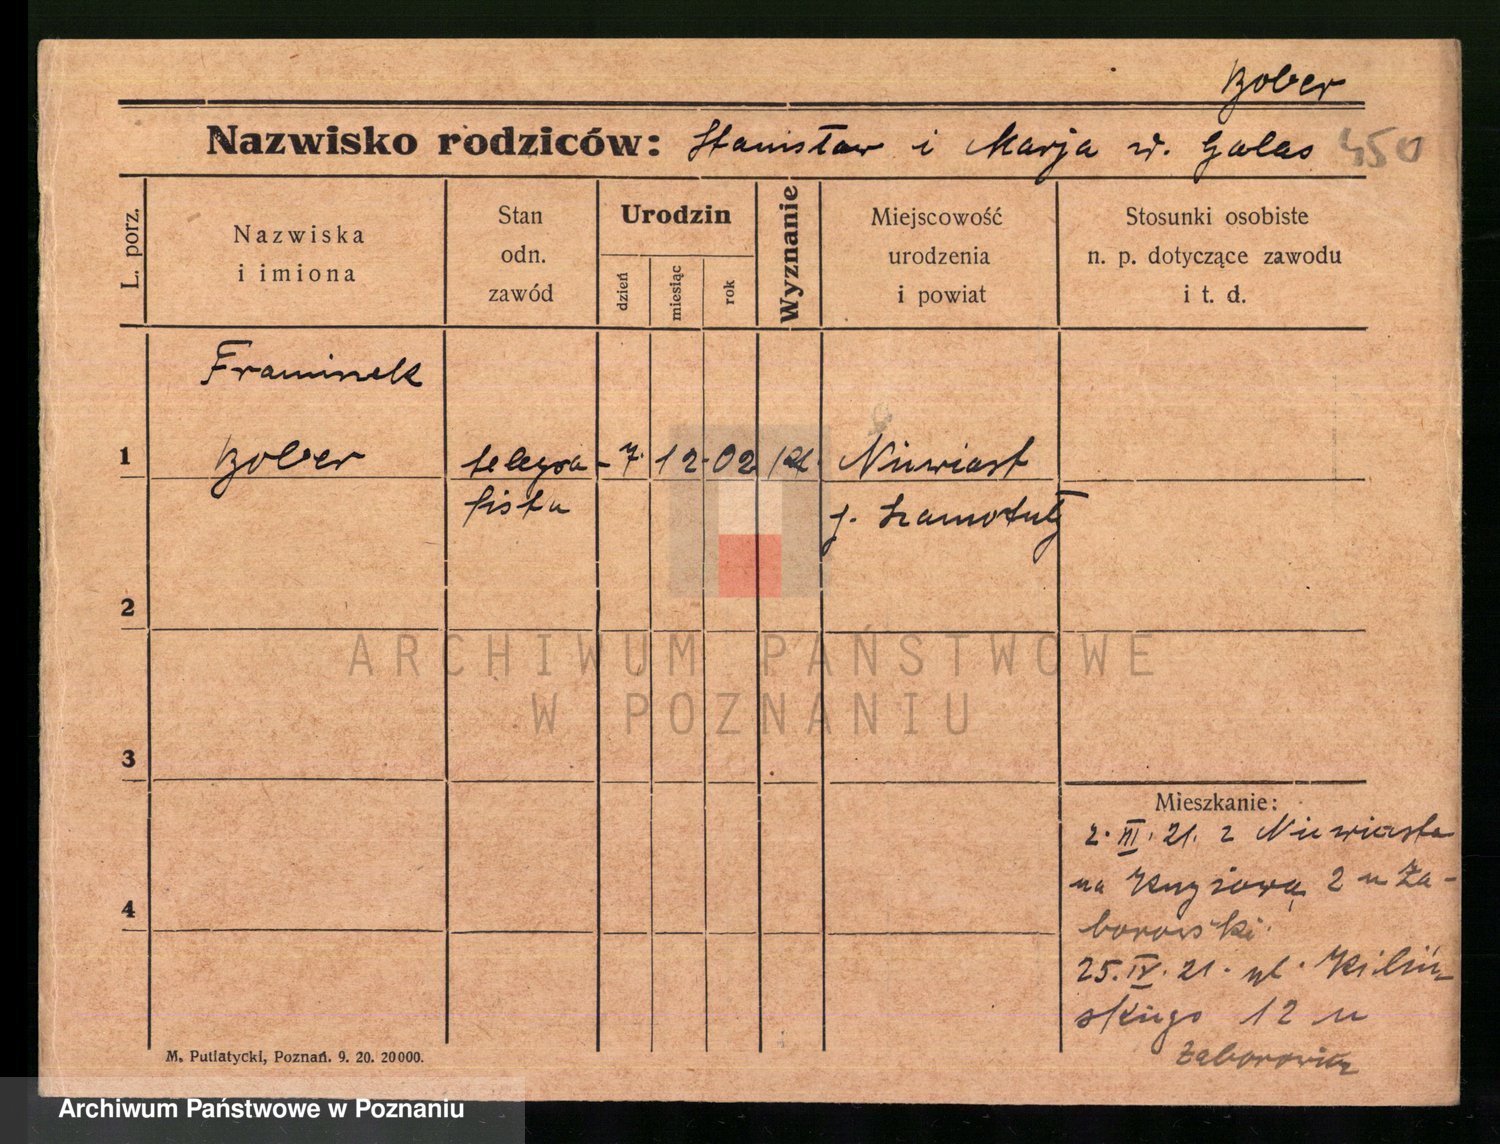 Bober
Nazwisko rodziców: Stanisław i Marja ur. Galas 450
L. porz.
Nazwiska
i imiona
Stan
odn.
zawód
Urodzin
dzień
miesiąc
rok
Wyznanie
Miejscowość
urodzenia
i powiat
Stosunki osobiste
n. p. dotyczące zawodu
i t. d.
1
Bober
telegra-
fista
7. 12. 02.
kat.
Niewiast
p. Szamotuły
2
3
4
Mieszkanie:
2. III. 21. z Niewiasta
na 2 u Za-
borowski.
25. IV. 21. ul. Kiliń-
skiego 12 u
M. Putiatycki, Poznań. 9. 20. 20000.
ARCHIWUM PAŃSTWOWE
W POZNANIU
Archiwum Państwowe w Poznaniu